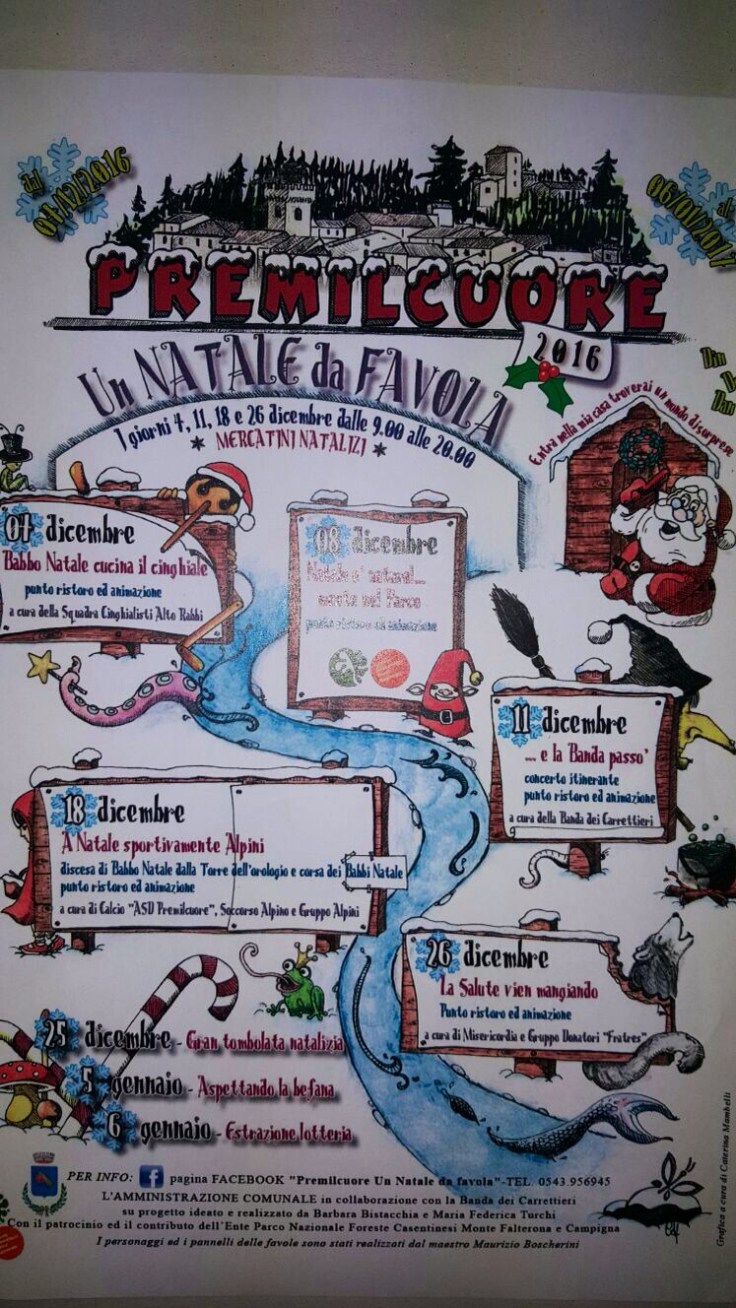 dal
al
06/01/2017
PREMILCUORE
2016
Un NATALE da FAVOLA
I giorni 4, 11, 18 e 26 dicembre dalle 9.00 alle 20.00
* MERCATINI NATALIZI *
Din
Entra nella mia casa troverai un mondo di sorprese
dicembre
Babbo Natale cucina il cinghiale
punto ristoro ed animazione
a cura della Squadra Cinghialisti Alto Rabbi
08 dicembre
nel Parco
punto ristoro ed animazione
11 dicembre
... e la Banda passo'
concerto itinerante
punto ristoro ed animazione
a cura della Banda dei Carrettieri
18 dicembre
A Natale sportivamente Alpini
discesa di Babbo Natale dalla Torre dell'orologio e corsa dei Babbi Natale
punto ristoro ed animazione
a cura di Calcio "ASD Premilcuore", Soccorso Alpino e Gruppo Alpini
26 dicembre
La Salute vien mangiando
Punto ristoro ed animazione
a cura di Misericordia e Gruppo Donatori "Fratres"
25 dicembre - Gran tombolata natalizia
5 gennaio - Aspettando la befana
6 gennaio - Estrazione lotteria
PER INFO: f pagina FACEBOOK "Premilcuore Un Natale da favola"-TEL. 0543 956945
L'AMMINISTRAZIONE COMUNALE in collaborazione con la Banda dei Carrettieri
su progetto ideato e realizzato da Barbara Bistacchia e Maria Federica Turchi
Con il patrocinio ed il contributo dell'Ente Parco Nazionale Foreste Casentinesi Monte Falterona e Campigna
I personaggi ed i pannelli delle favole sono stati realizzati dal maestro Maurizio Boscherini
Grafica a cura di Caterina Mambelli